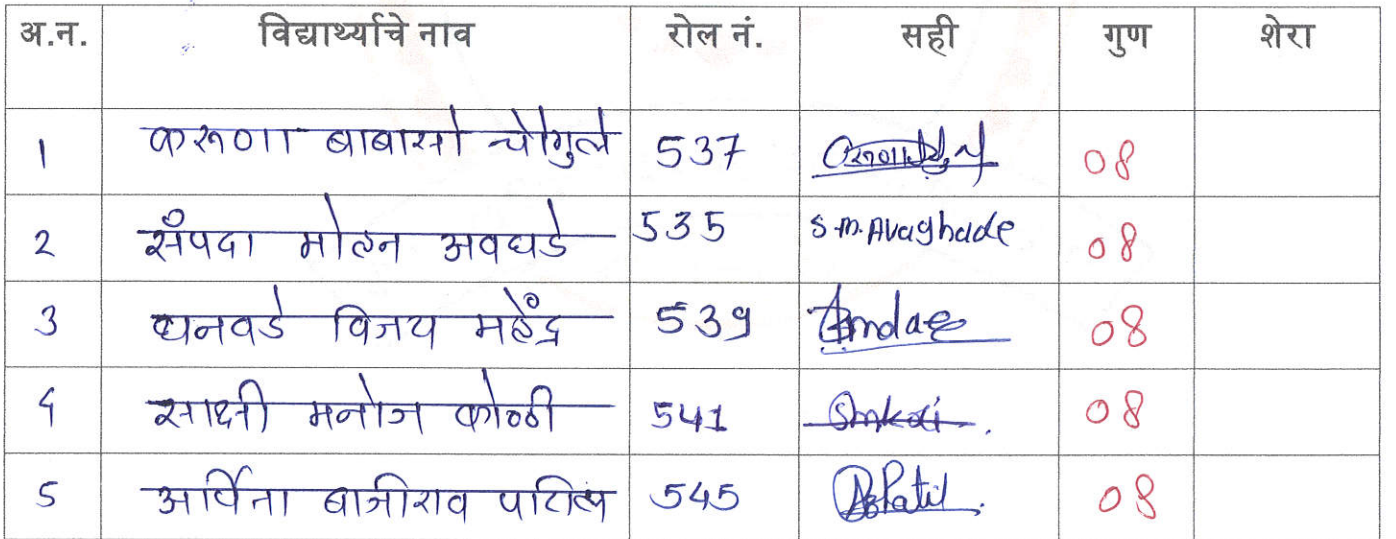 अ.न. विद्यार्थ्याचे नाव रोल नं. सही गुण शेरा
1 करूणा बाबासो चौगुले 537 08
2 संपदा मोहन अवघडे 535 S.M. Avaghade 08
3 धनवडे विजय महेंद्र 539 08
4 साक्षी मनोज कोळी 541 08
5 बाजीराव पाटील 545 Patil. 08